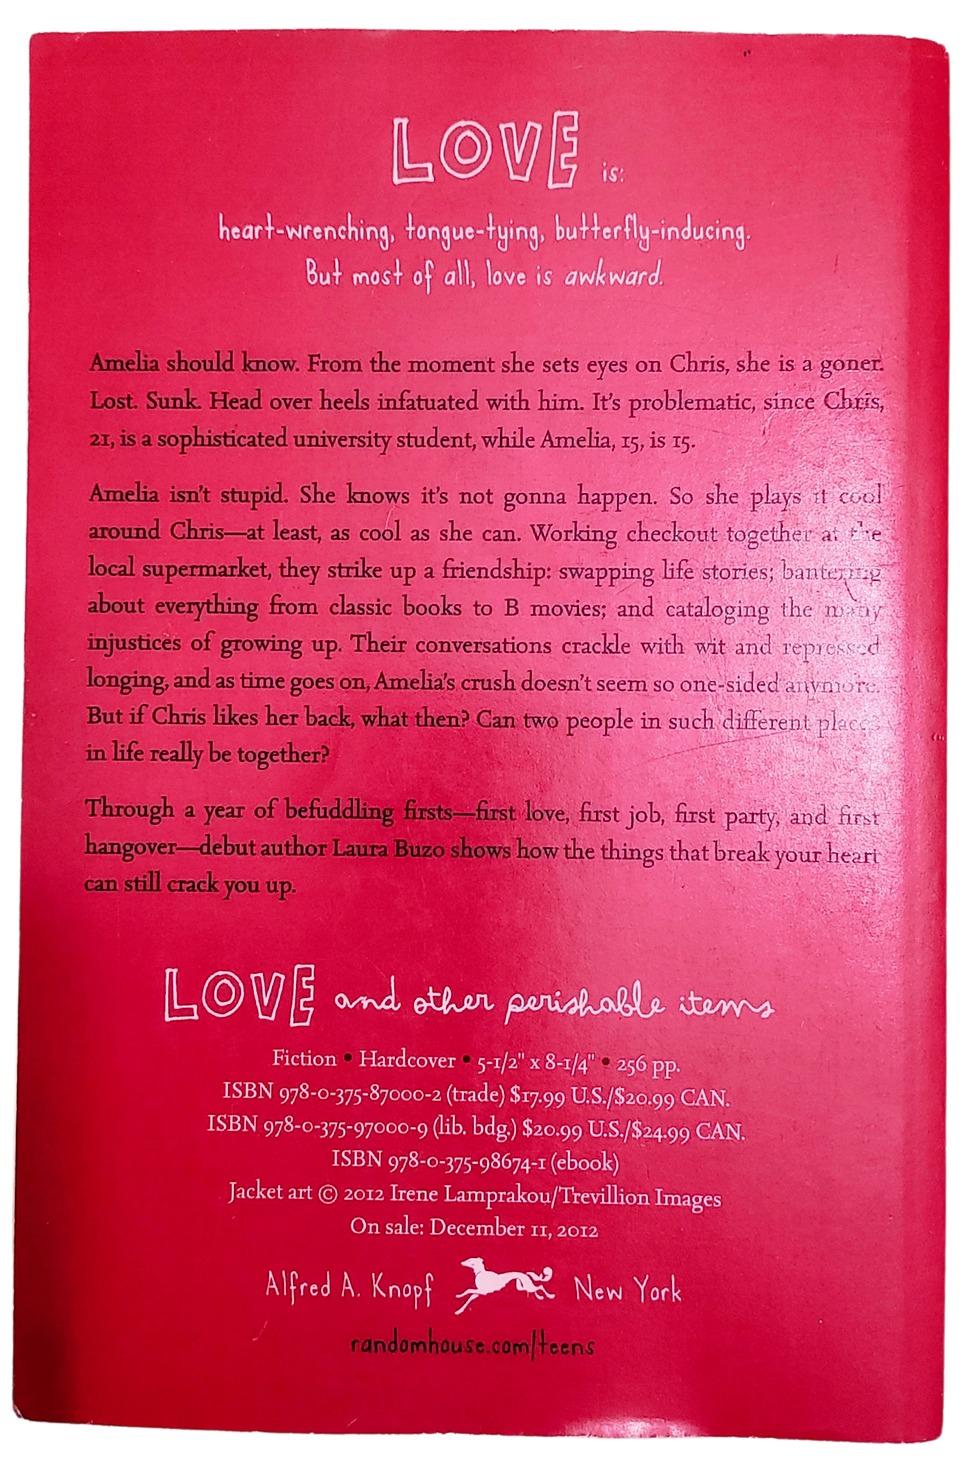 LOVE is:
heart-wrenching, tongue-tying, butterfly-inducing.
But most of all, love is awkward.
Amelia should know. From the moment she sets eyes on Chris, she is a goner.
Lost. Sunk. Head over heels infatuated with him. It's problematic, since Chris,
21, is a sophisticated university student, while Amelia, 15, is 15.
Amelia isn't stupid. She knows it's not gonna happen. So she plays it cool
around Chris—at least, as cool as she can. Working checkout together at the
local supermarket, they strike up a friendship: swapping life stories; bantering
about everything from classic books to B movies; and cataloging the many
injustices of growing up. Their conversations crackle with wit and repressed
longing, and as time goes on, Amelia's crush doesn't seem so one-sided anymore.
But if Chris likes her back, what then? Can two people in such different places
in life really be together?
Through a year of befuddling firsts—first love, first job, first party, and first
hangover—debut author Laura Buzo shows how the things that break your heart
can still crack you up.
LOVE and other perishable items
Fiction • Hardcover • 5-1/2" x 8-1/4" • 256 pp.
ISBN 978-0-375-87000-2 (trade) $17.99 U.S./$20.99 CAN.
ISBN 978-0-375-97000-9 (lib. bdg.) $20.99 U.S./$24.99 CAN.
ISBN 978-0-375-98674-1 (ebook)
Jacket art © 2012 Irene Lamprakou/Trevillion Images
On sale: December 11, 2012
Alfred A. Knopf New York
randomhouse.com/teens